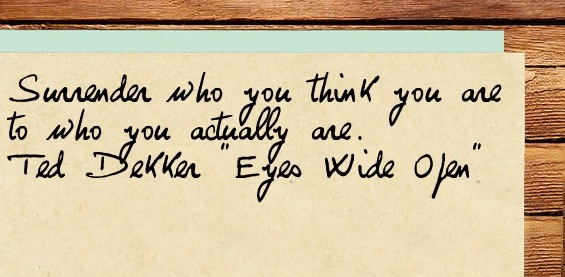 Surrender who you think you are
to who you actually are.
Ted Dekker "Eyes Wide Open"